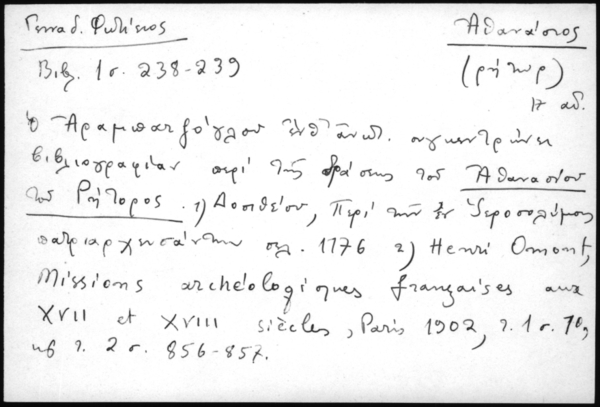 Γενναδ. Φωτίειος
Ἀθανάσιος
Βιβλ. 1 σ. 238-239
(ρήτωρ)
17 αἰ.
Ὁ Ἀραμπατζόγλου ἔνθ' ἄνωτ. συγκεντρώνει
βιβλιογραφίαν περὶ τῆς δράσεως τοῦ Ἀθανασίου
τοῦ Ρήτορος. 1) Δοσιθέου, Περὶ τῶν ἐν Ἱεροσολύμοις
πατριαρχευσάντων σελ. 1176 2) Henri Omont,
Missions archéologiques françaises aux
XVII et XVIII siècles, Paris 1902, τ. 1 σ.
τ. 2 σ. 856-857.